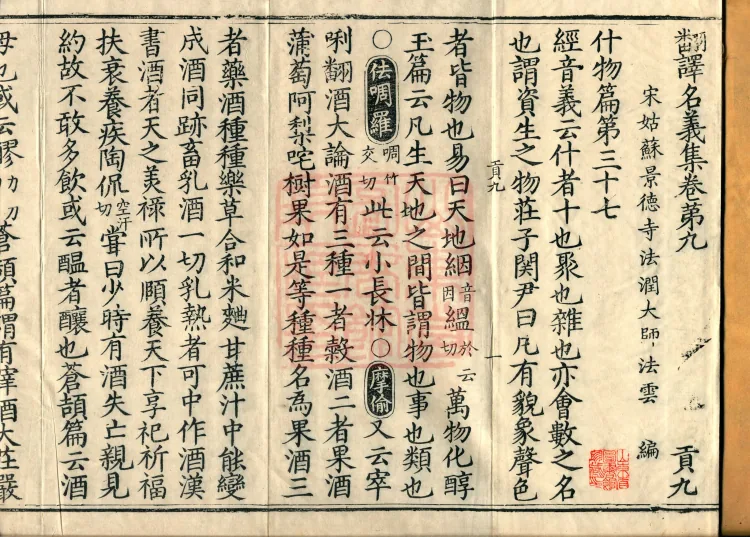 翻譯名義集卷第九 貢九
宋姑蘇景德寺法潤大師法雲 編
什物篇第三十七
經音義云什者十也聚也雜也亦會數之名
也謂資生之物莊子関尹曰凡有貌象聲色
貢九 一
者皆物也易曰天地絪音因縕於云切萬物化醇
玉篇云凡生天地之間皆謂物也事也類也
○佉啁羅啁竹交切此云小長牀○摩偷又云窣
唎翻酒大論酒有三種一者穀酒二者果酒
蒲萄阿梨咤樹果如是等種種名為果酒三
者藥酒種種藥草合和米麹甘蔗汁中能變
成酒同跡畜乳酒一切乳熱者可中作酒漢
書酒者天之美禄所以頤養天下享祀祈福
扶衰養疾陶侃空汗切甞曰少時有酒失亡親見
約故不敢多飲或云醖者釀也蒼頡篇云酒
母也或云醪力刀切蒼頡篇謂有滓酒大莊嚴